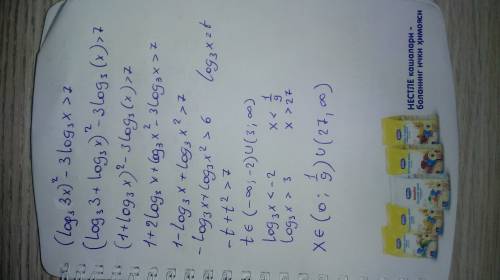 (log₃ 3x)² - 3log₃x > 7
(log₃3 + log₃x)² - 3log₃(x) > 7
(1 + log₃x)² - 3log₃(x) > 7
1 + 2log₃x + log₃x² - 3log₃x > 7
1 - log₃x + log₃x² > 7
- log₃x + log₃x² > 6 log₃x = t
- t + t² > 7
t ∈ (-∞; -2) ∪ (3; ∞)
log₃x < -2 x < 1/9
log₃x > 3 x > 27
x ∈ (0; 1/9) ∪ (27, ∞)
НЕСТЛЕ кашалари -
боланинг ички ҳимояси